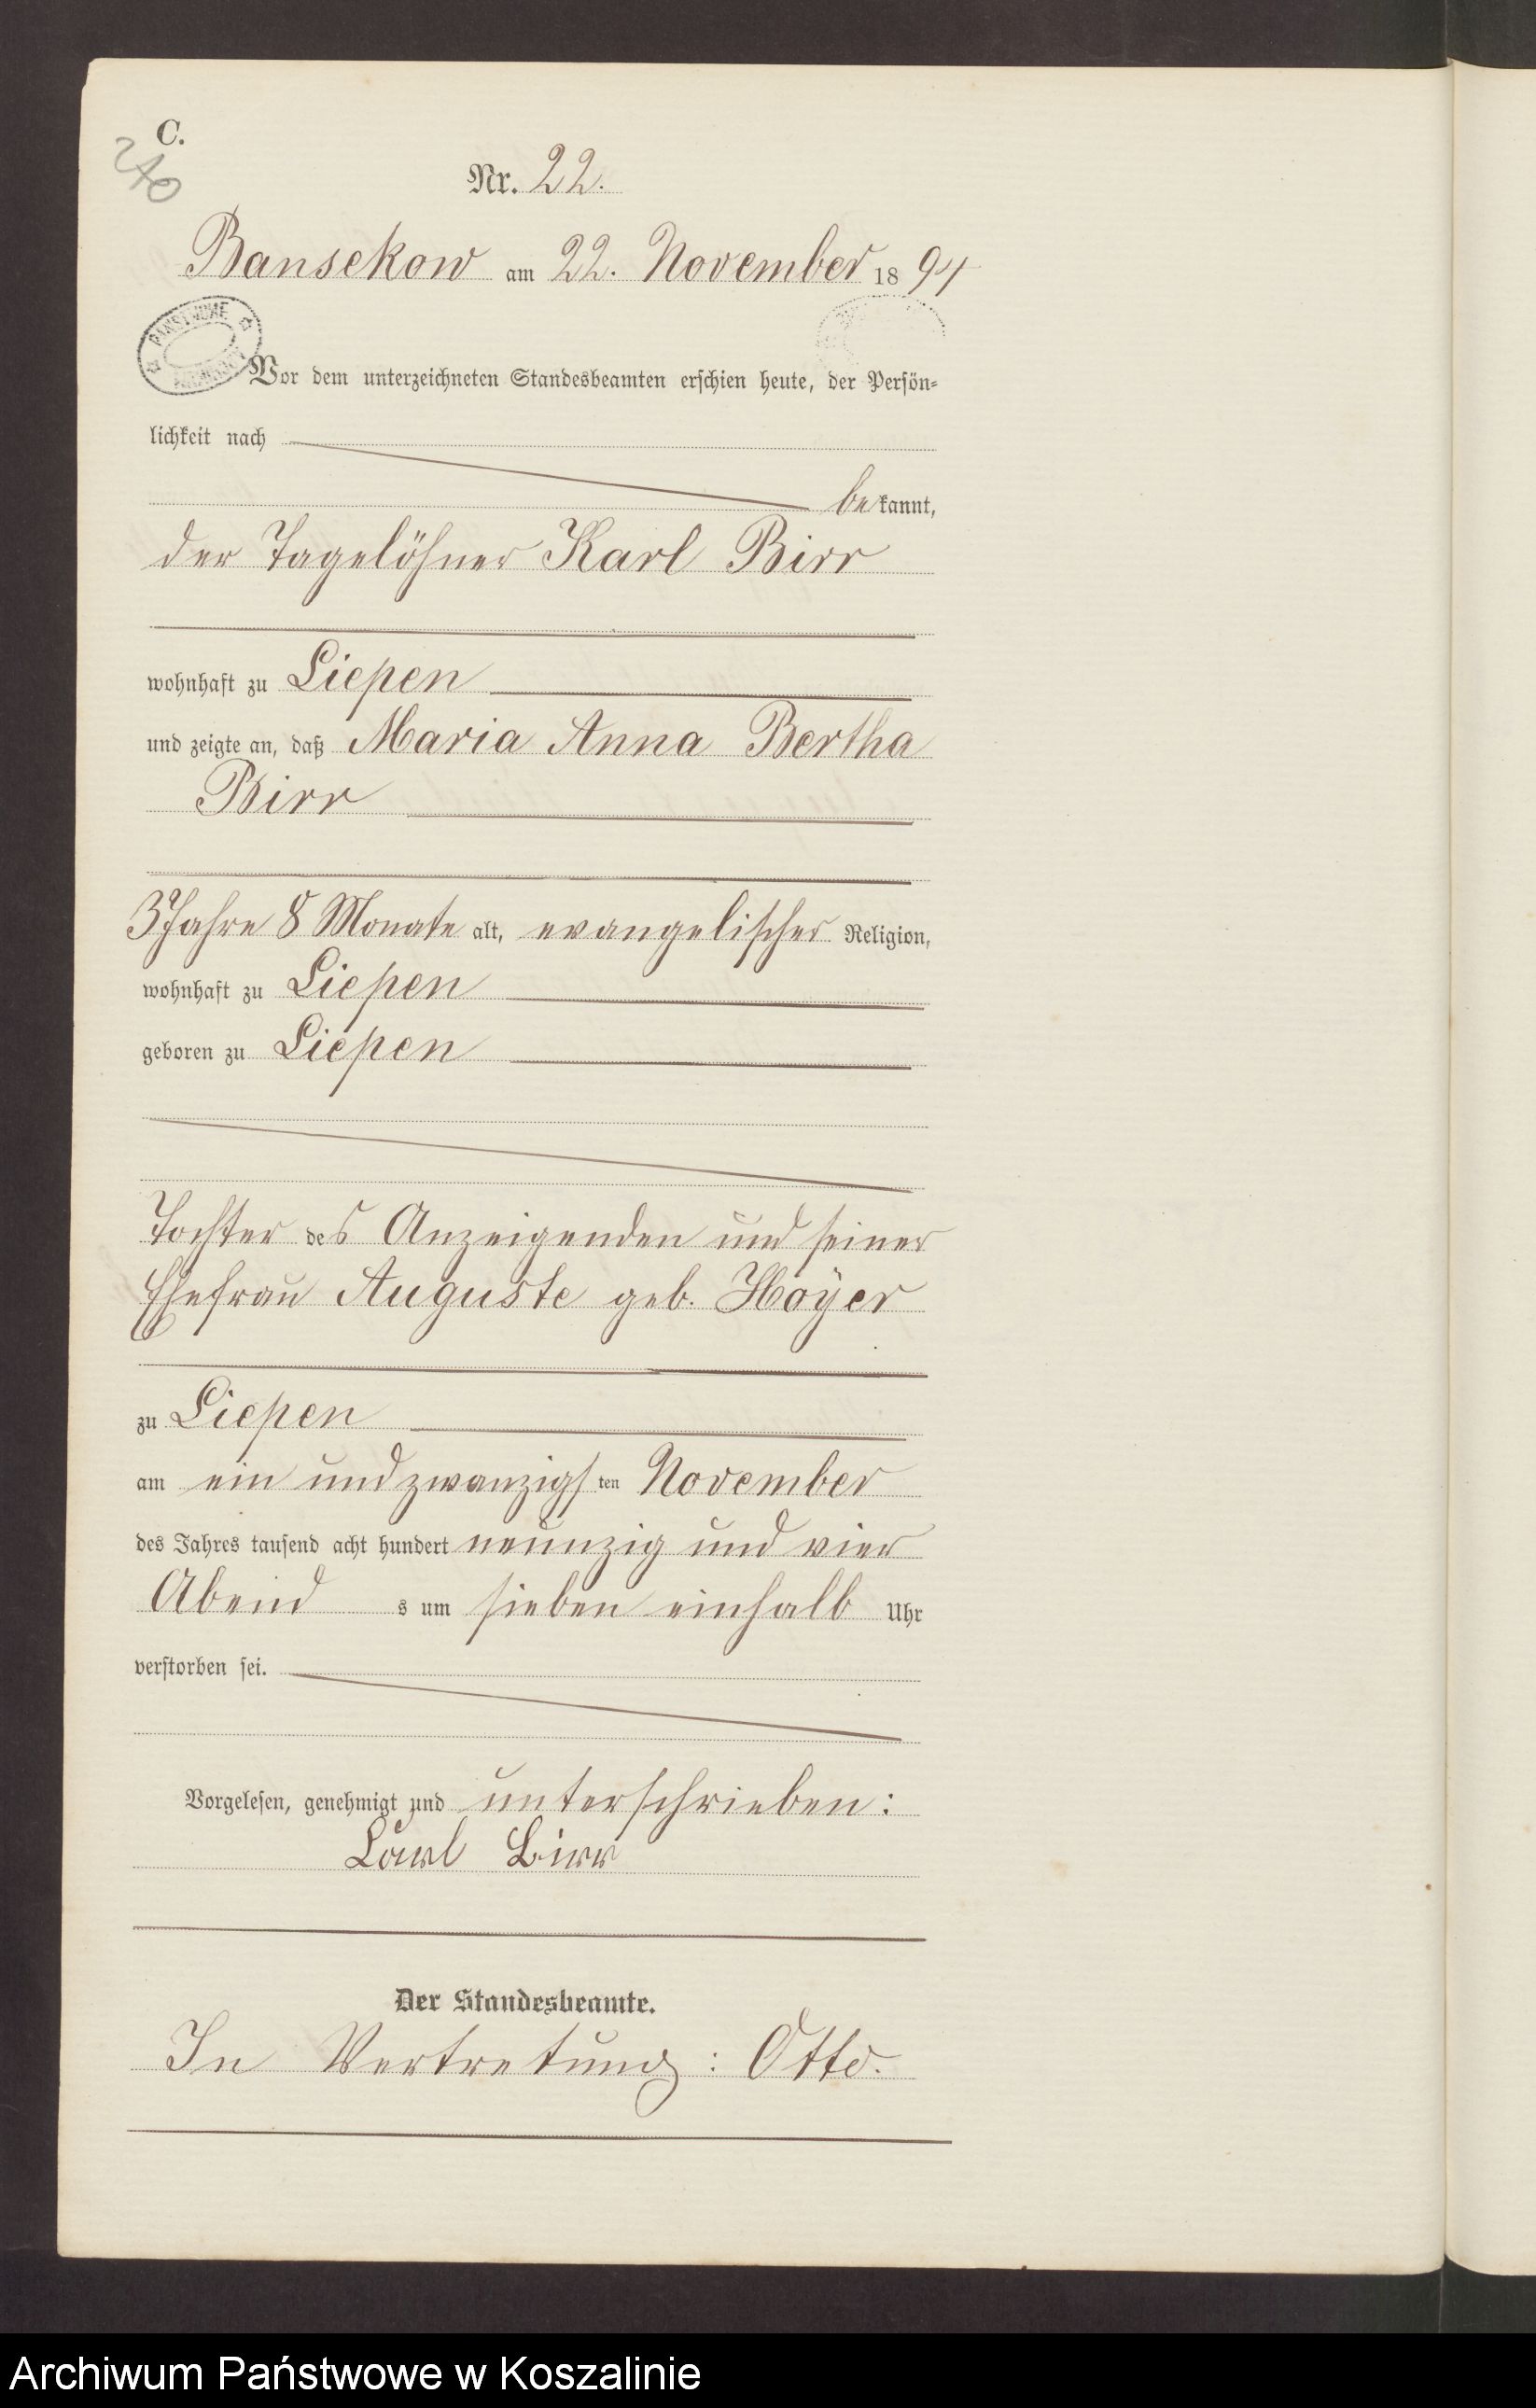 C.
240
Nr. 22.
Bansekow am 22. November 1894
PANSTWOWE
Vor dem unterzeichneten Standesbeamten erschien heute, der Persön-
lichkeit nach
bekannt,
der Tagelöhner Karl Birr
wohnhaft zu Liepen
und zeigte an, daß Maria Anna Bertha
Birr
3 Jahre 8 Monate alt, evangelischer Religion,
wohnhaft zu Liepen
geboren zu Liepen
Tochter des Anzeigenden und seiner
Ehefrau Auguste geb. Hoÿer
zu Liepen
am ein und zwanzigsten November
des Jahres tausend acht hundert neunzig und vier
Abends um sieben einhalb Uhr
verstorben sei.
Vorgelesen, genehmigt und unterschrieben:
Carl Birr
Der Standesbeamte.
In Vertretung: Otto.
Archiwum Państwowe w Koszalinie